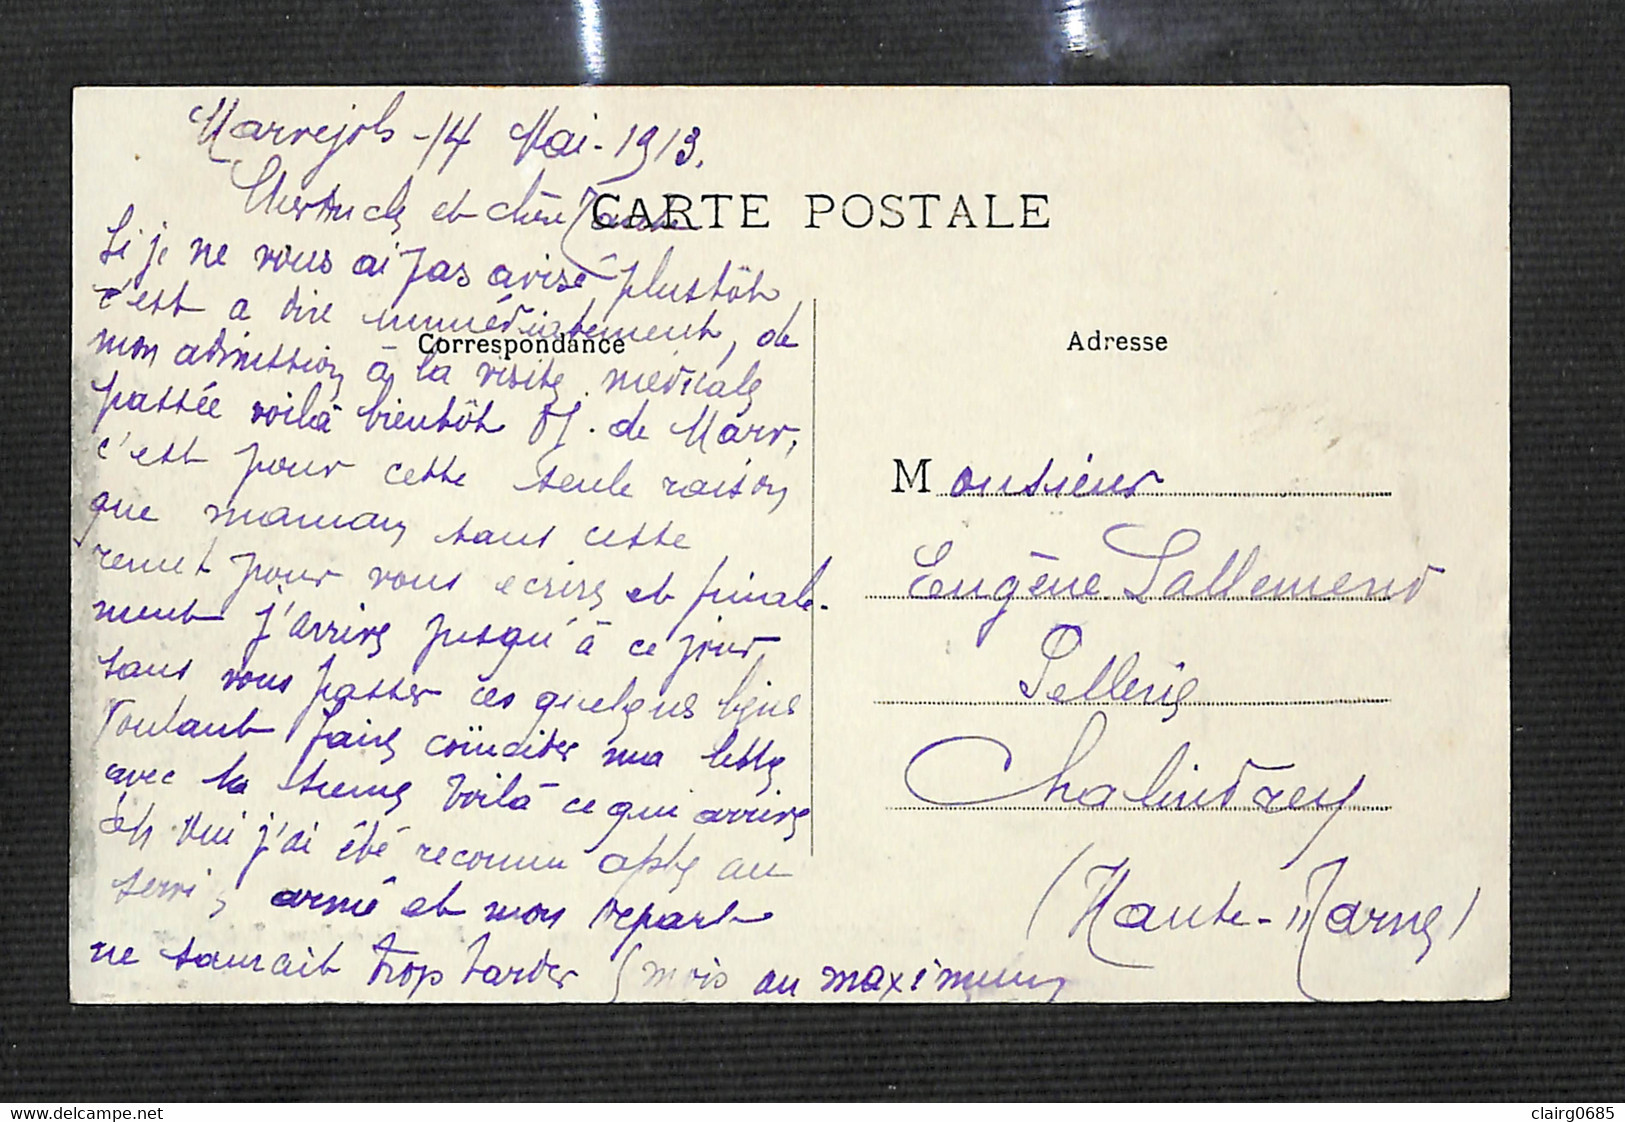 Marvejols - 14 Mai - 1913.
Cher Oncle et chère Tante
CARTE POSTALE
Si je ne vous ai pas avisé plustôt
c'est a dire immédiatement, de
Correspondance
mon admission à la visite médicale
passée voilà bientôt de Marv,
c'est pour cette seule raison
que maman sans cesse
remet pour vous ecrire et finale-
ment j'arrive jusqu'à ce jour
sans vous passer ces quelques lignes
Voulant faire coïncider ma lettre
avec la sienne Voilà ce qui arrive
Eh oui j'ai été reconnu apte au
servi armé et mon depart
ne saurait trop tarder 5 mois au maximum
Adresse
Monsieur
Eugène Lallemend
Pellerin
Chalindrey
(Haute-Marne)
delcampe.net
clairg0685